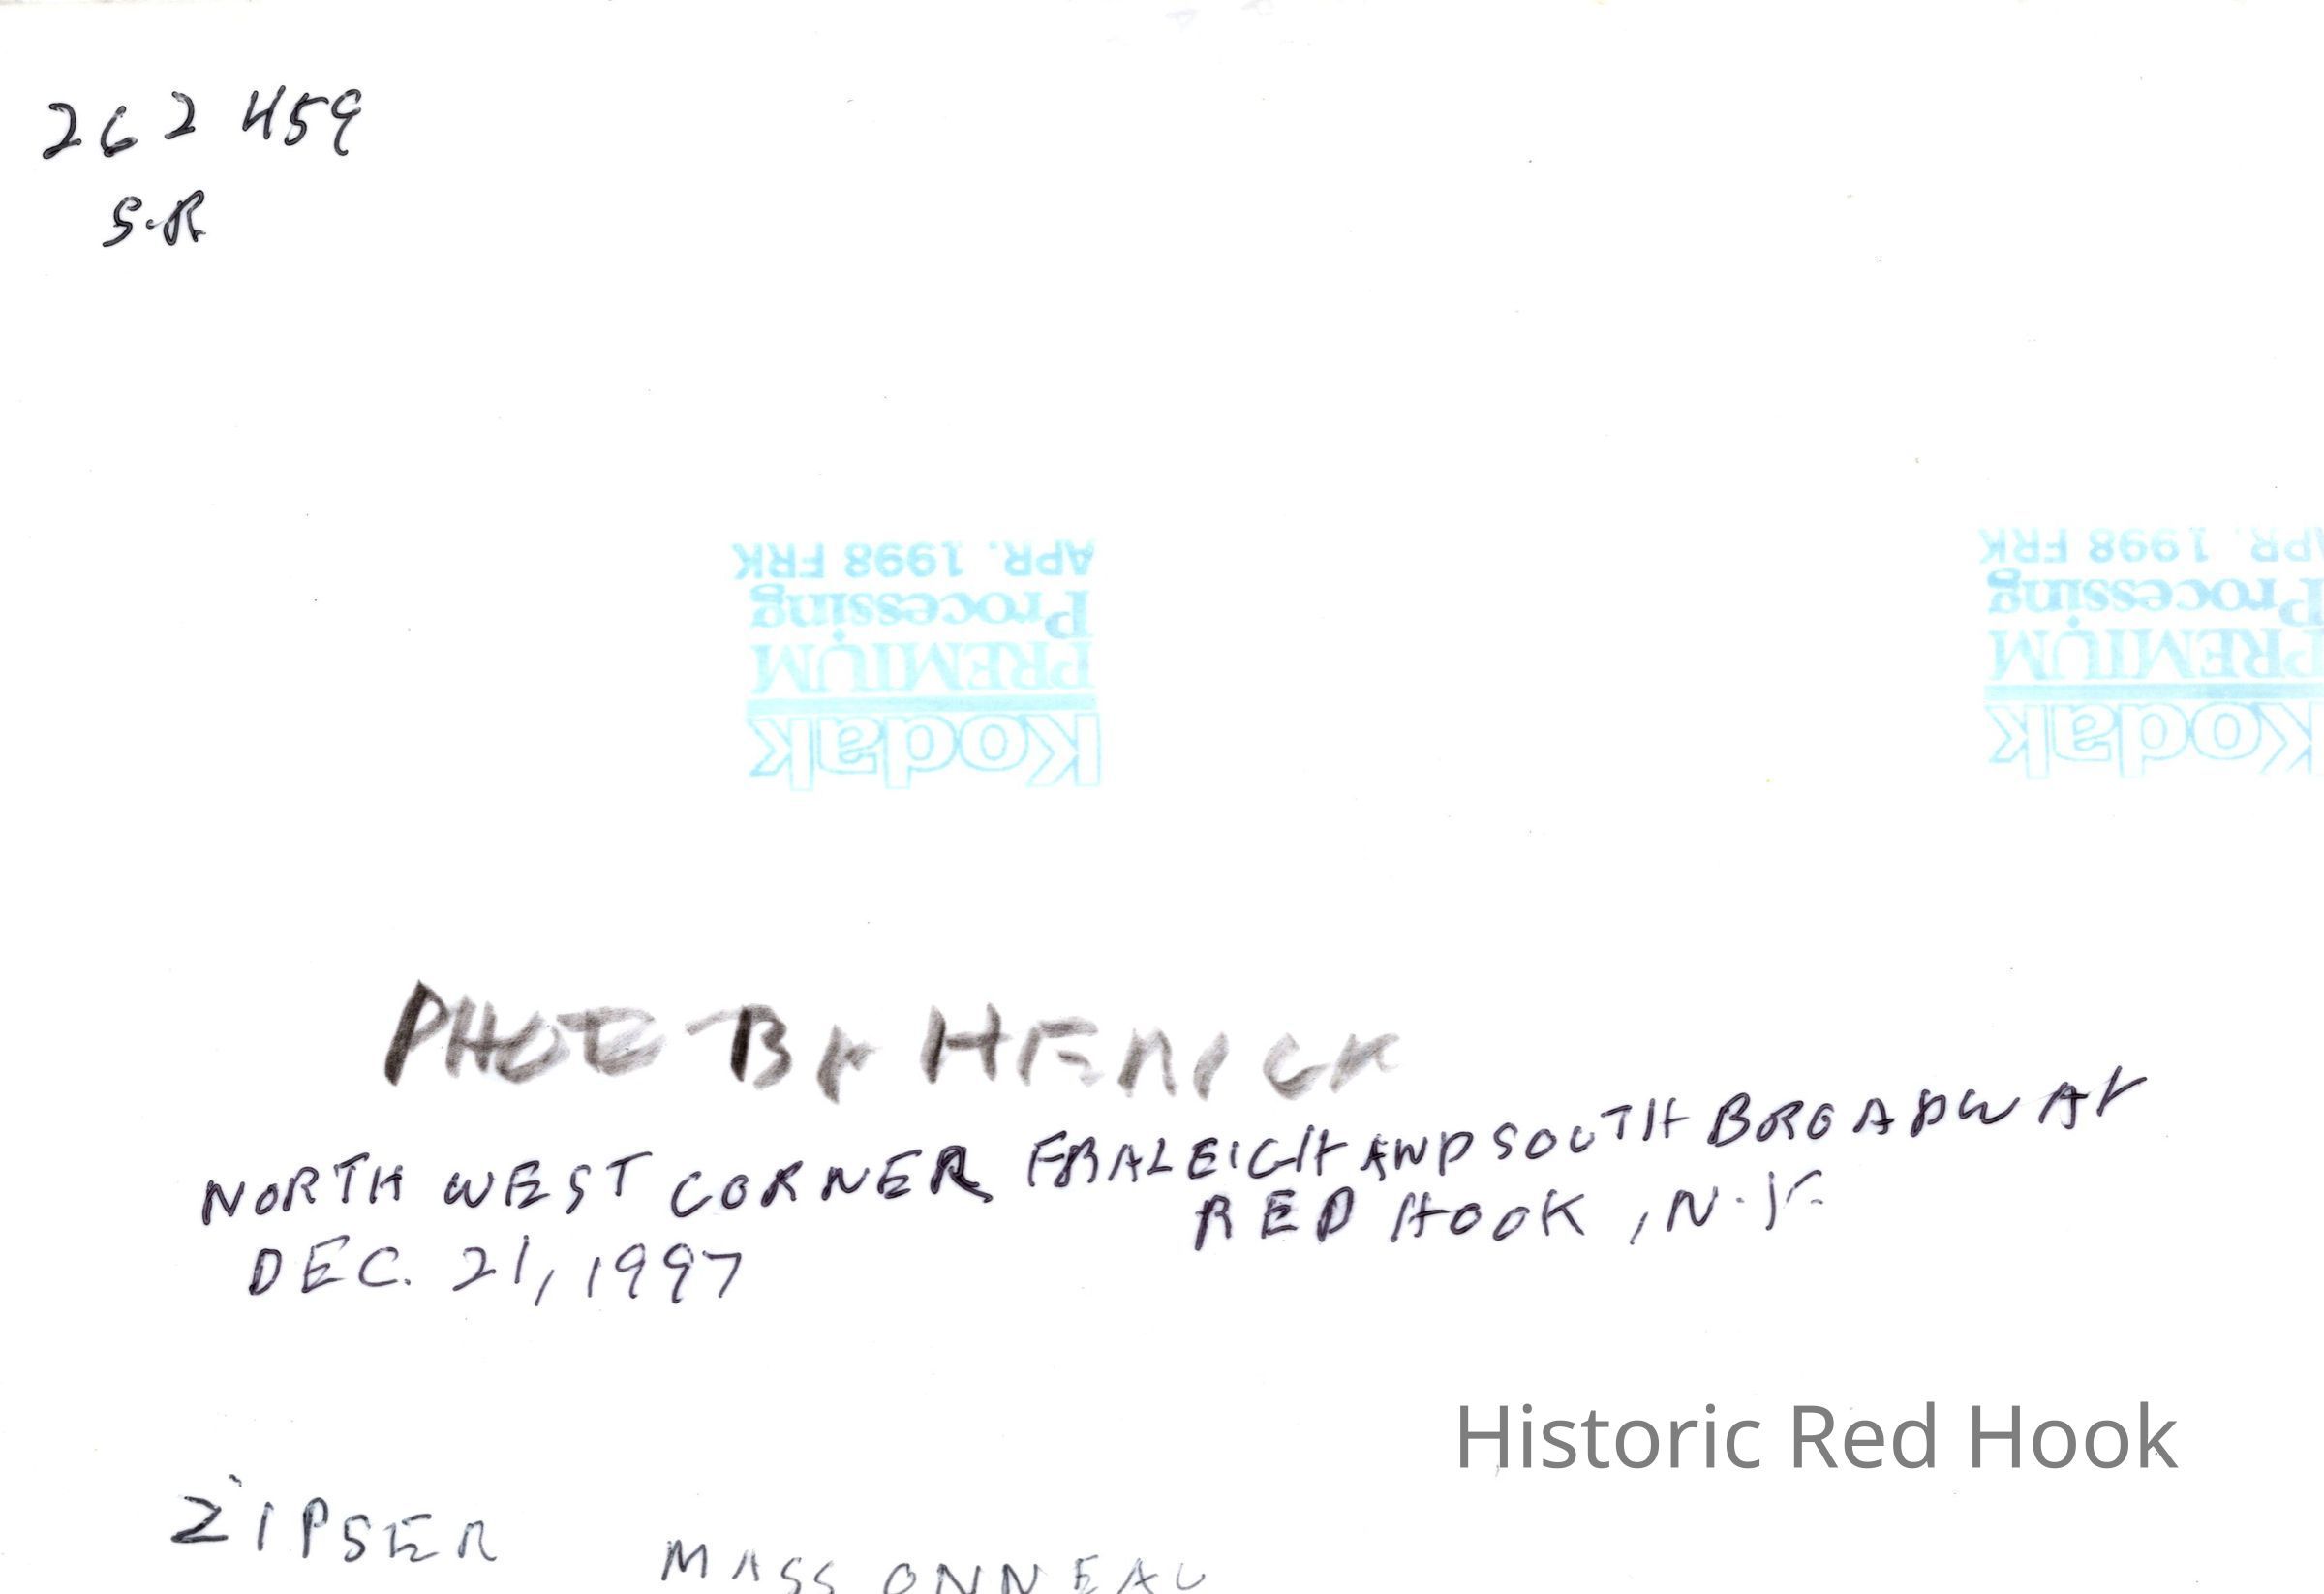 262 459
S.R
APR. 1998 FRK
Processing
PREMIUM
Kodak
PR. 1998 FRK
Processing
PREMIUM
Kodak
PHOTO BY HERICK
NORTH WEST CORNER FRALEIGH AND SOUTH BROADWAY
RED HOOK, N.Y.
DEC. 21, 1997
Historic Red Hook
ZIPSER MASSONNEAU